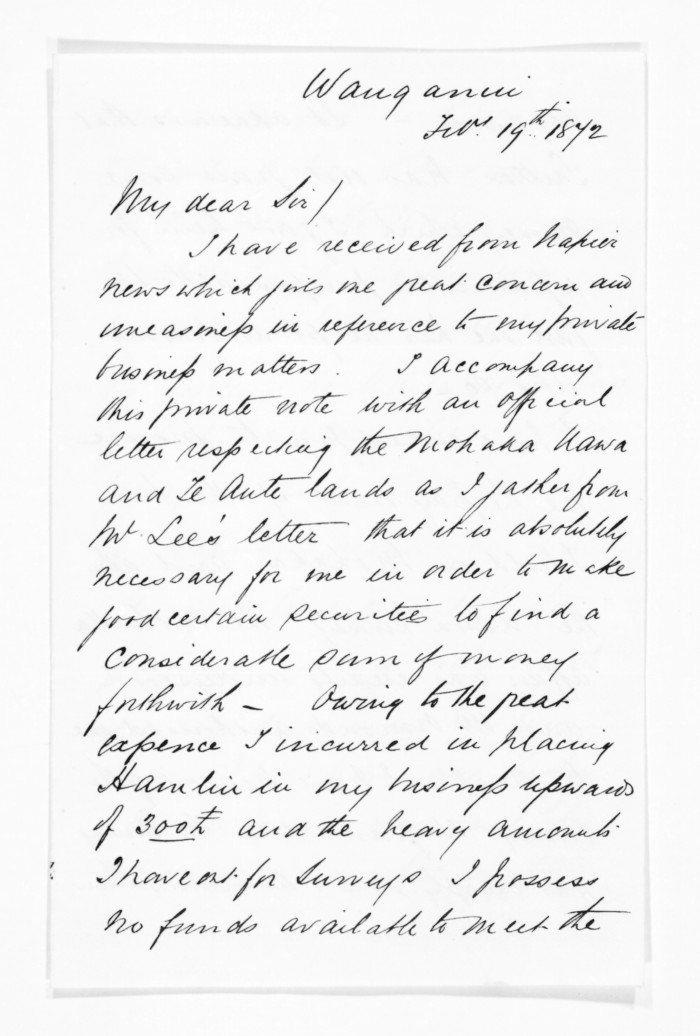 Wanganui
Feby. 19th. 1872
My dear Sir/
I have received from Napier
news which gives me great concern and
uneasiness in reference to my private
business matters. I accompany
this private note with an official
letter respecting the Mohaka Kawa
and Te Aute lands as I gather from
Mr Lee's letter that it is absolutely
necessary for me in order to make
good certain securities to find a
considerable sum of money
forthwith – Owing to the great
expence I incurred in placing
Hamlin in my business upwards
of 300£ and the heavy amounts
I have out for Surveys I possess
no funds available to meet the